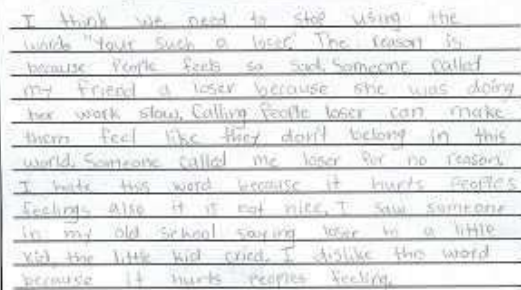 I think we need to stop using the
words "your such a loser." The reason is
because People feels so sad. Someone called
my friend a loser because she was doing
her work slow. Calling People loser can make
them feel like they don't belong in this
world. Someone called me loser for no reason.
I hate this word because it hurts Peoples
feelings also it is not nice. I saw someone
in my old school saying loser to a little
kid the little kid cried. I dislike this word
because it hurts peoples feeling.